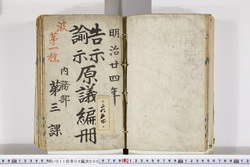 明治廿四年
告示
諭示
原議編冊
内務部
第三課
波第一種